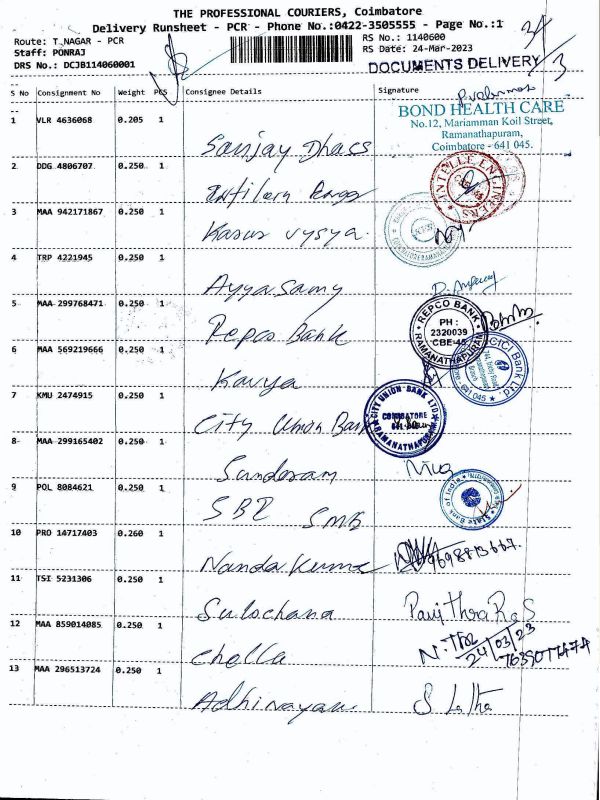 THE PROFESSIONAL COURIERS, Coimbatore
Delivery Runsheet - PCR - Phone No.:0422-3505555 - Page No.:1
Route: T.NAGAR - PCR
RS No.: 1140600
Staff: PONRAJ
RS Date: 24-Mar-2023
DRS No.: DCJB114060001
DOCUMENTS DELIVERY
34/3
S No Consignment No Weight PCS Consignee Details Signature
1 VLR 4636068 0.205 1 Sanjay Dhass
BOND HEALTH CARE
No.12, Mariamman Koil Street,
Ramanathapuram,
Coimbatore - 641 045.
2 DDG 4806707 0.250 1
INTELLE ENGINEERS
3 MAA 942171867 0.250 1 Karur vysya
4 TRP 4221945 0.250 1 Ayyasamy
5 MAA 299768471 0.250 1 Repco Bank
REPCO BANK
PH :
2320039
CBE-45
RAMANATHAPURAM
6 MAA 569219666 0.250 1 Kavya
ICICI Bank Ltd
641 045
7 KMU 2474915 0.250 1 City Union Bank
CITY UNION BANK LTD
COIMBATORE
RAMANATHAPURAM
8 MAA 299165402 0.250 1 Sundaram
9 POL 8084621 0.250 1 SBI SMB
State Bank of India
10 PRO 14717403 0.260 1 Nanda Kumar
9698813667
11 TSI 5231306 0.250 1 Sulochana
Pavithra R S
12 MAA 859014085 0.250 1 Chella
24/03/23
13 MAA 296513724 0.250 1 Adhinayam
S Latha